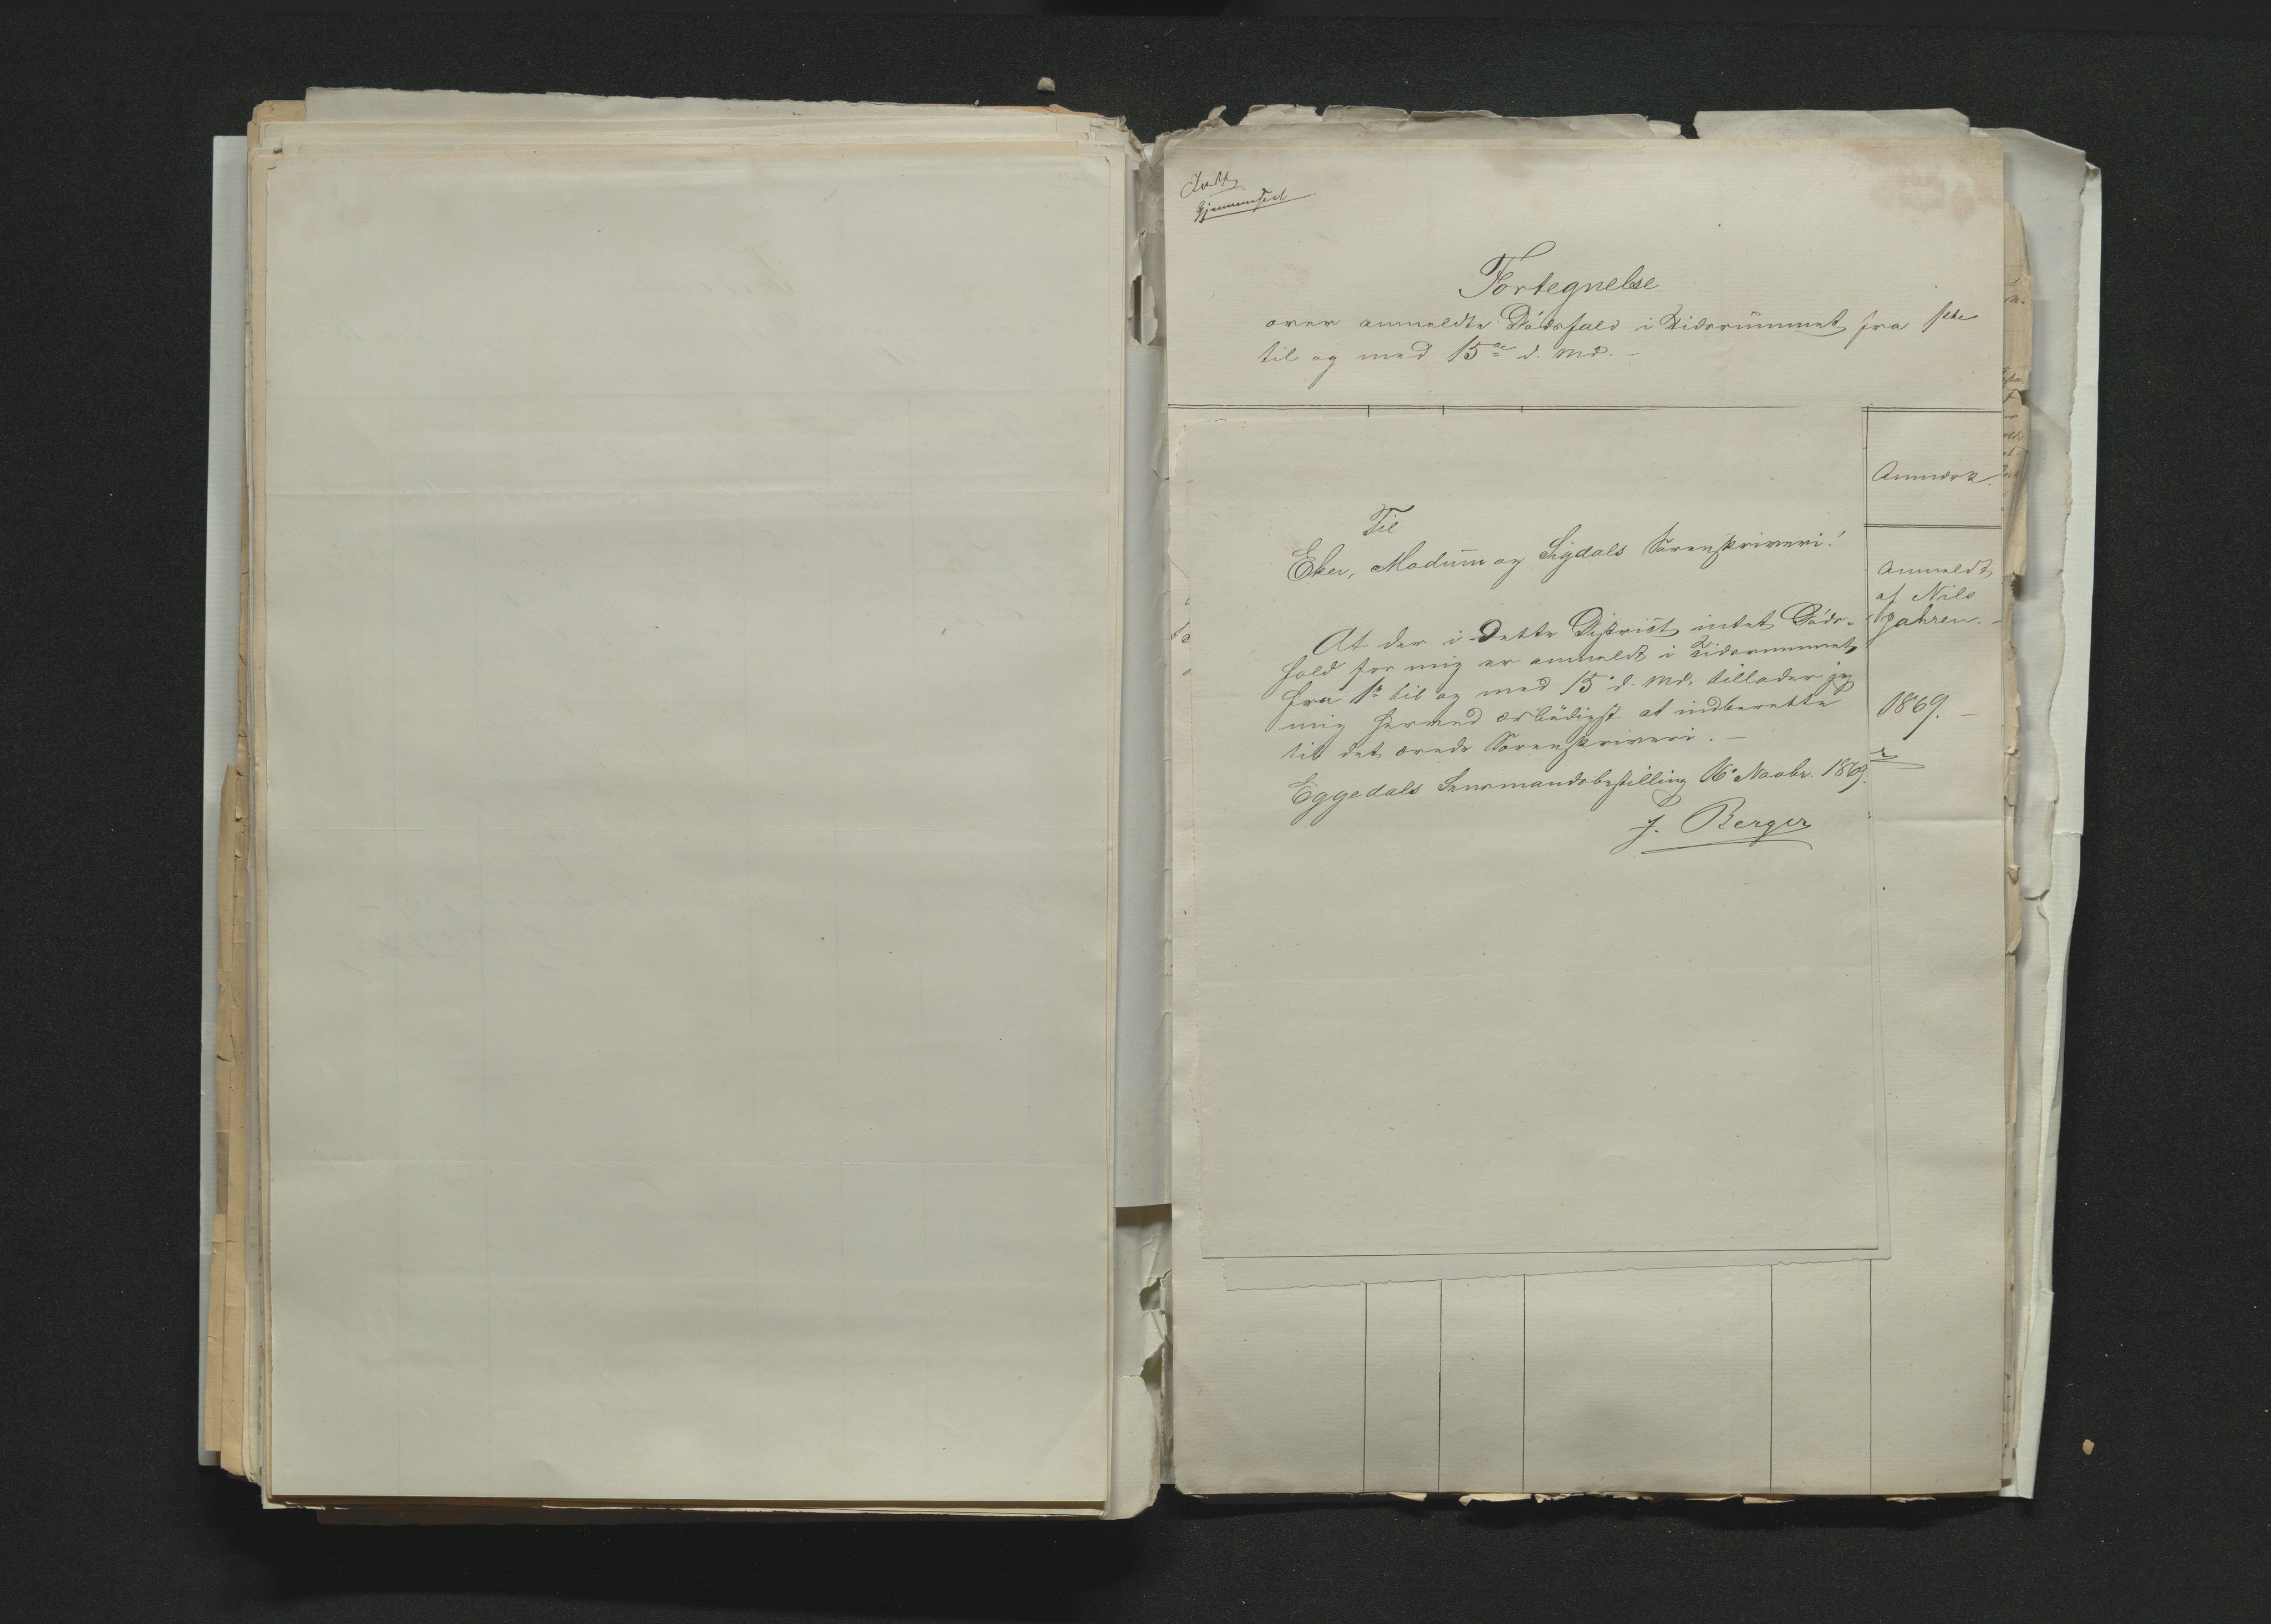 Fortegnelse
over anmeldte Dødsfald i Tidsrummet fra 1ste
til og med 15de d. Md. –
Anmærk.
Anmeldt
af Nils
1869. –
Til
Eker, Modum og Sigdals Sorenskriveri!
At der i dette District intet Døds-
fald for mig er anmeldt i Tidsrummet
fra 1ste til og med 15de d. Md. tillader jeg
mig herved ærbødigst at indberette
til det ærede Sorenskriveri. –
Eggedals Lensmandsbestilling 16de Novbr. 1869.
J. Berger